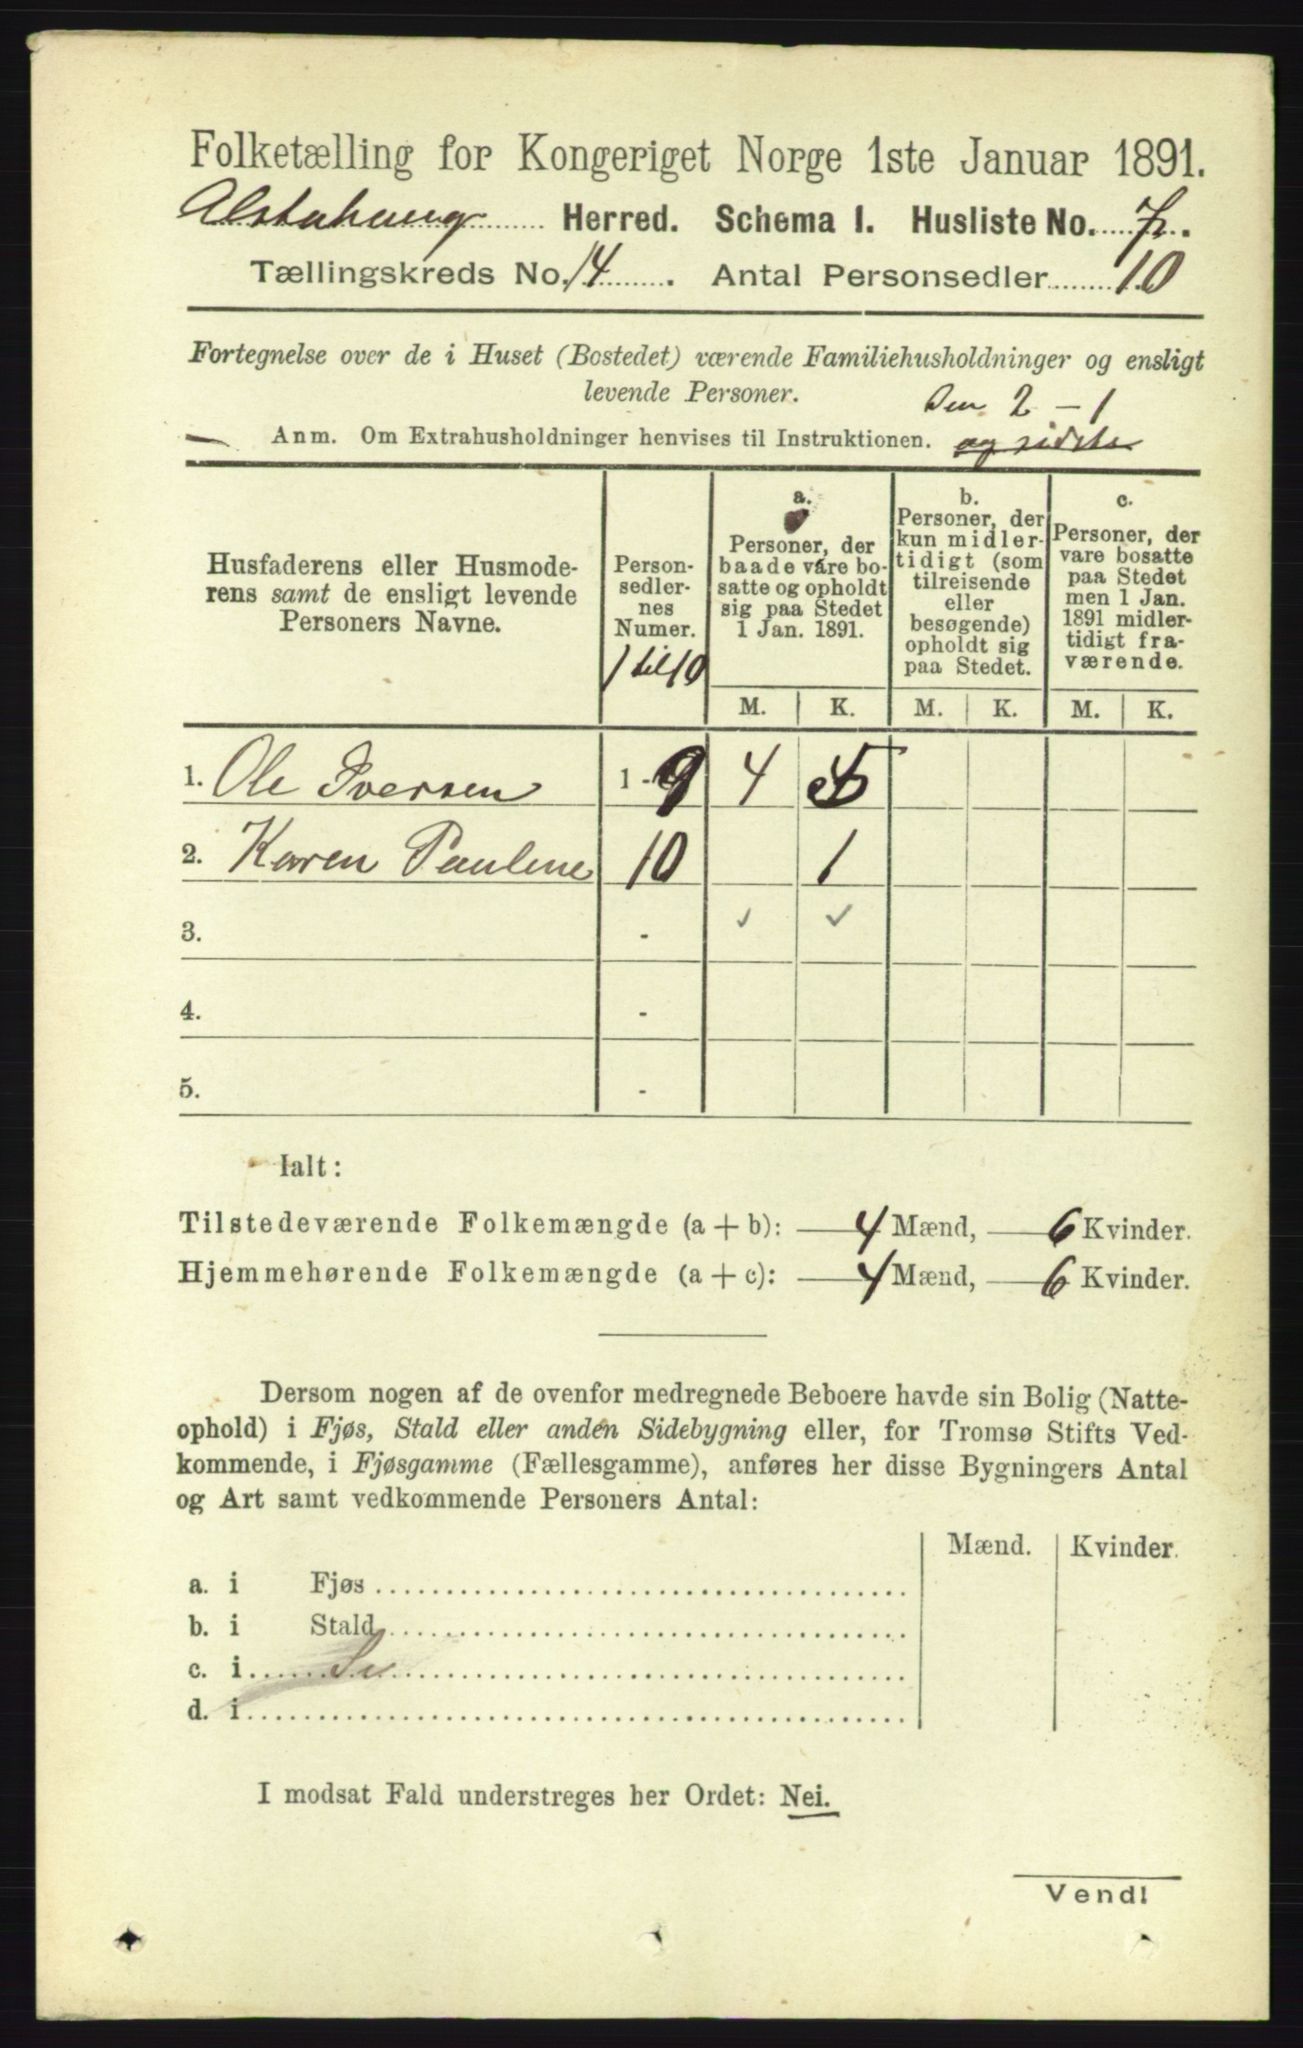 Folketælling for Kongeriget Norge 1ste Januar 1891.
Alstahaug Herred. Schema I. Husliste No. 7.
Tællingskreds No. 14. Antal Personsedler 10
Fortegnelse over de i Huset (Bostedet) værende Familiehusholdninger og ensligt
levende Personer.
Den 2 - 1
Anm. Om Extrahusholdninger henvises til Instruktionen. og sidste
Husfaderens eller Husmode-
rens samt de ensligt levende
Personers Navne.
Person-
sedler-
nes
Numer.
1 til 10
a.
Personer, der
baade vare bo-
satte og opholdt
sig paa Stedet
1 Jan. 1891.
b.
Personer, der
kun midler-
tidigt (som
tilreisende
eller
besøgende)
opholdt sig
paa Stedet.
c.
Personer, der
vare bosatte
paa Stedet
men 1 Jan.
1891 midler-
tidigt fra-
værende.
M. K. M. K. M. K.
1. Ole Iversen 1 - 9 4 5
2. Karen Pauline 10 1
3. - ✓ ✓
4. -
5. -
Ialt:
Tilstedeværende Folkemængde (a + b): 4 Mænd, 6 Kvinder.
Hjemmehørende Folkemængde (a + c): 4 Mænd, 6 Kvinder.
Dersom nogen af de ovenfor medregnede Beboere havde sin Bolig (Natte-
ophold) i Fjøs, Stald eller anden Sidebygning eller, for Tromsø Stifts Ved-
kommende, i Fjøsgamme (Fællesgamme), anføres her disse Bygningers Antal
og Art samt vedkommende Personers Antal:
Mænd. Kvinder.
a. i Fjøs
b. i Stald
c. i
d. i
I modsat Fald understreges her Ordet: Nei.
Vend!